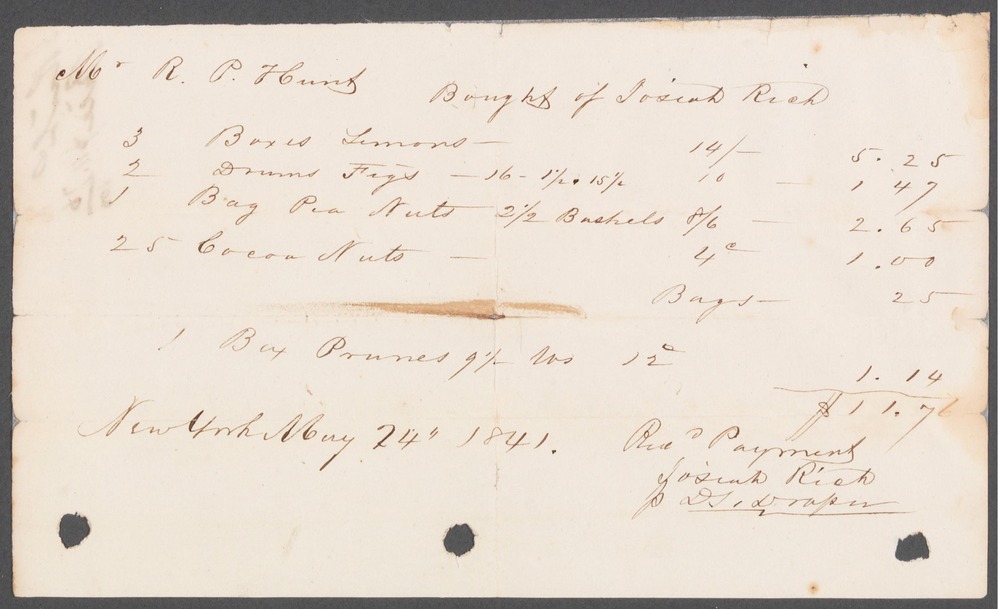 Mr R. P. Hunt
Bought of Josiah Rich
3 Boxes Lemons — 14/— 5.25
2 Drums Figs — 16 - 1/2 . 15 1/2 10 — 1 47
1 Bag Pea Nuts 2 1/2 Bushels 8/6 — 2.65
25 Cocoa Nuts — 4c 1.00
Bags — 25
1 Box Prunes 9 1/2 lbs 12c
1.14
$11.76
New York May 24" 1841.
Recd Payment
Josiah Rich
p D S. Draper